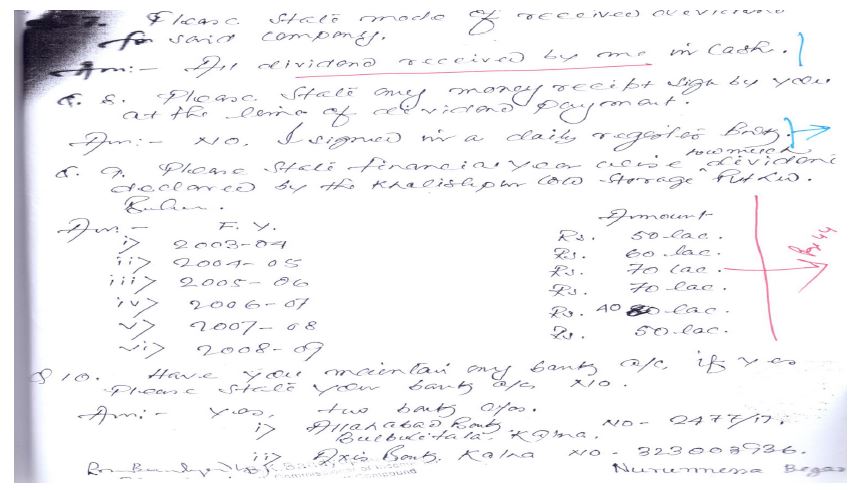 7. Please state mode of received dividend
for said company.
Ans:- All dividend received by me in cash.
Q. 8. Please state any money receipt sign by you
at the time of dividend payment.
Ans:- No. I signed in a daily register Book.
Q. 9. Please state financial year wise how much dividend
declared by the Khalishpur Cold Storage Pvt Ltd.
Ans:- F.Y. Amount
i> 2003-04 Rs. 50 lac.
ii> 2004-05 Rs. 60 lac.
iii> 2005-06 Rs. 70 lac.
iv> 2006-07 Rs. 70 lac.
v> 2007-08 Rs. 40 lac.
vi> 2008-09 Rs. 50 lac.
Q 10. Have you maintain any bank a/c, if yes
Please state your bank a/c No.
Ans:- Yes, two bank a/cs.
i> Allahabad Bank No- 2477/
Kalna.
ii> Axis Bank, Kalna No- 323003936.
Nurunnessa Begam